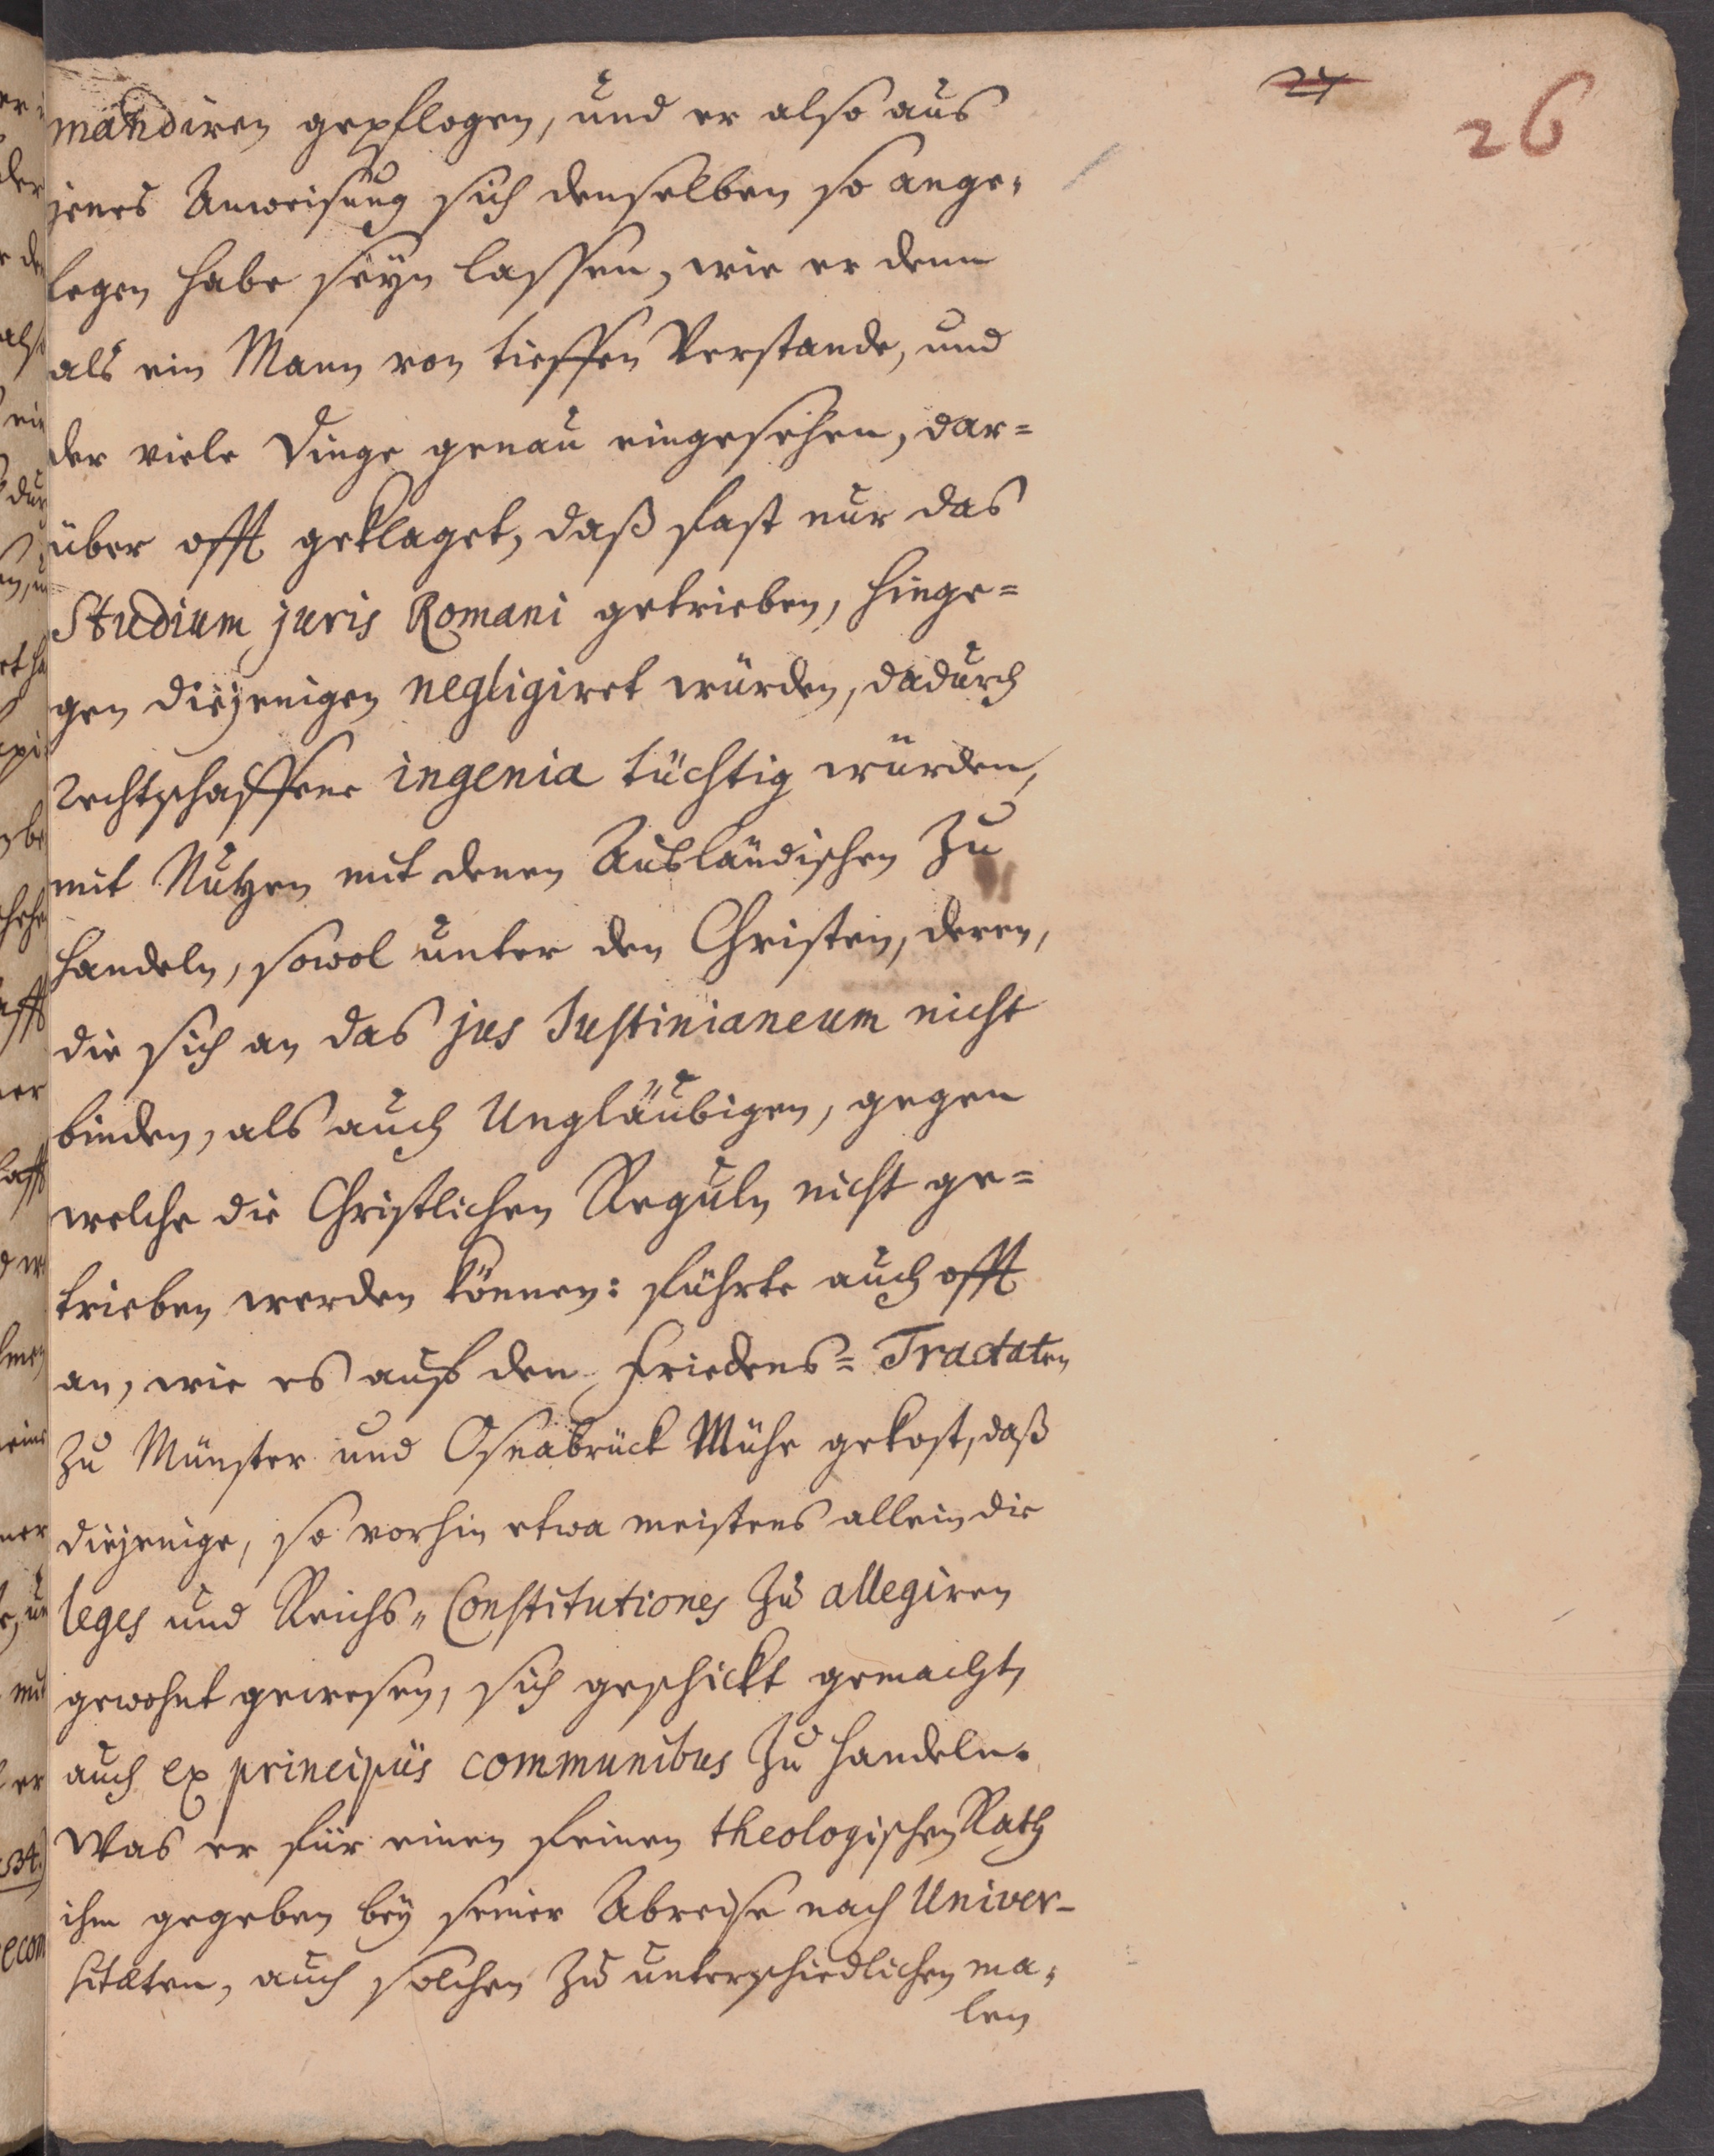 27
26
mandiren gepflogen, und er also aus
jenes Anweisung sich denselben so ange-
legen habe seyn lassen, wie er denn
als ein Mann von tieffen Verstande, und
der viele Dinge genau eingesehen, dar=
über offt geklaget, daß fast nur das
Studium juris Romani getrieben, hinge=
gen diejenigen negligiret würden, dadurch
rechtschaffene ingenia tüchtig würden,
mit Nutzen mit denen Ausländischen zu
handeln, sowol unter den Christen, deren,
die sich an das jus Justinianeum nicht
binden, als auch Ungläubigen, gegen
welche die Christlichen Reguln nicht ge=
trieben werden können: führte auch offt
an, wie es auf den Friedens= Tractaten
zu Münster und Osnabrück Mühe gekost, daß
diejenige, so vorhin etwa meistens allein die
leges und Reichs= Constitutiones zu allegiren
gewohnt gewesen, sich geschickt gemacht,
auch ex principiis communibus zu handeln.
Was er für einen feinen theologischen Rath
ihm gegeben bey seiner Abreise nach Univer-
sitæten, auch solchen zu unterschiedlichen ma-
len